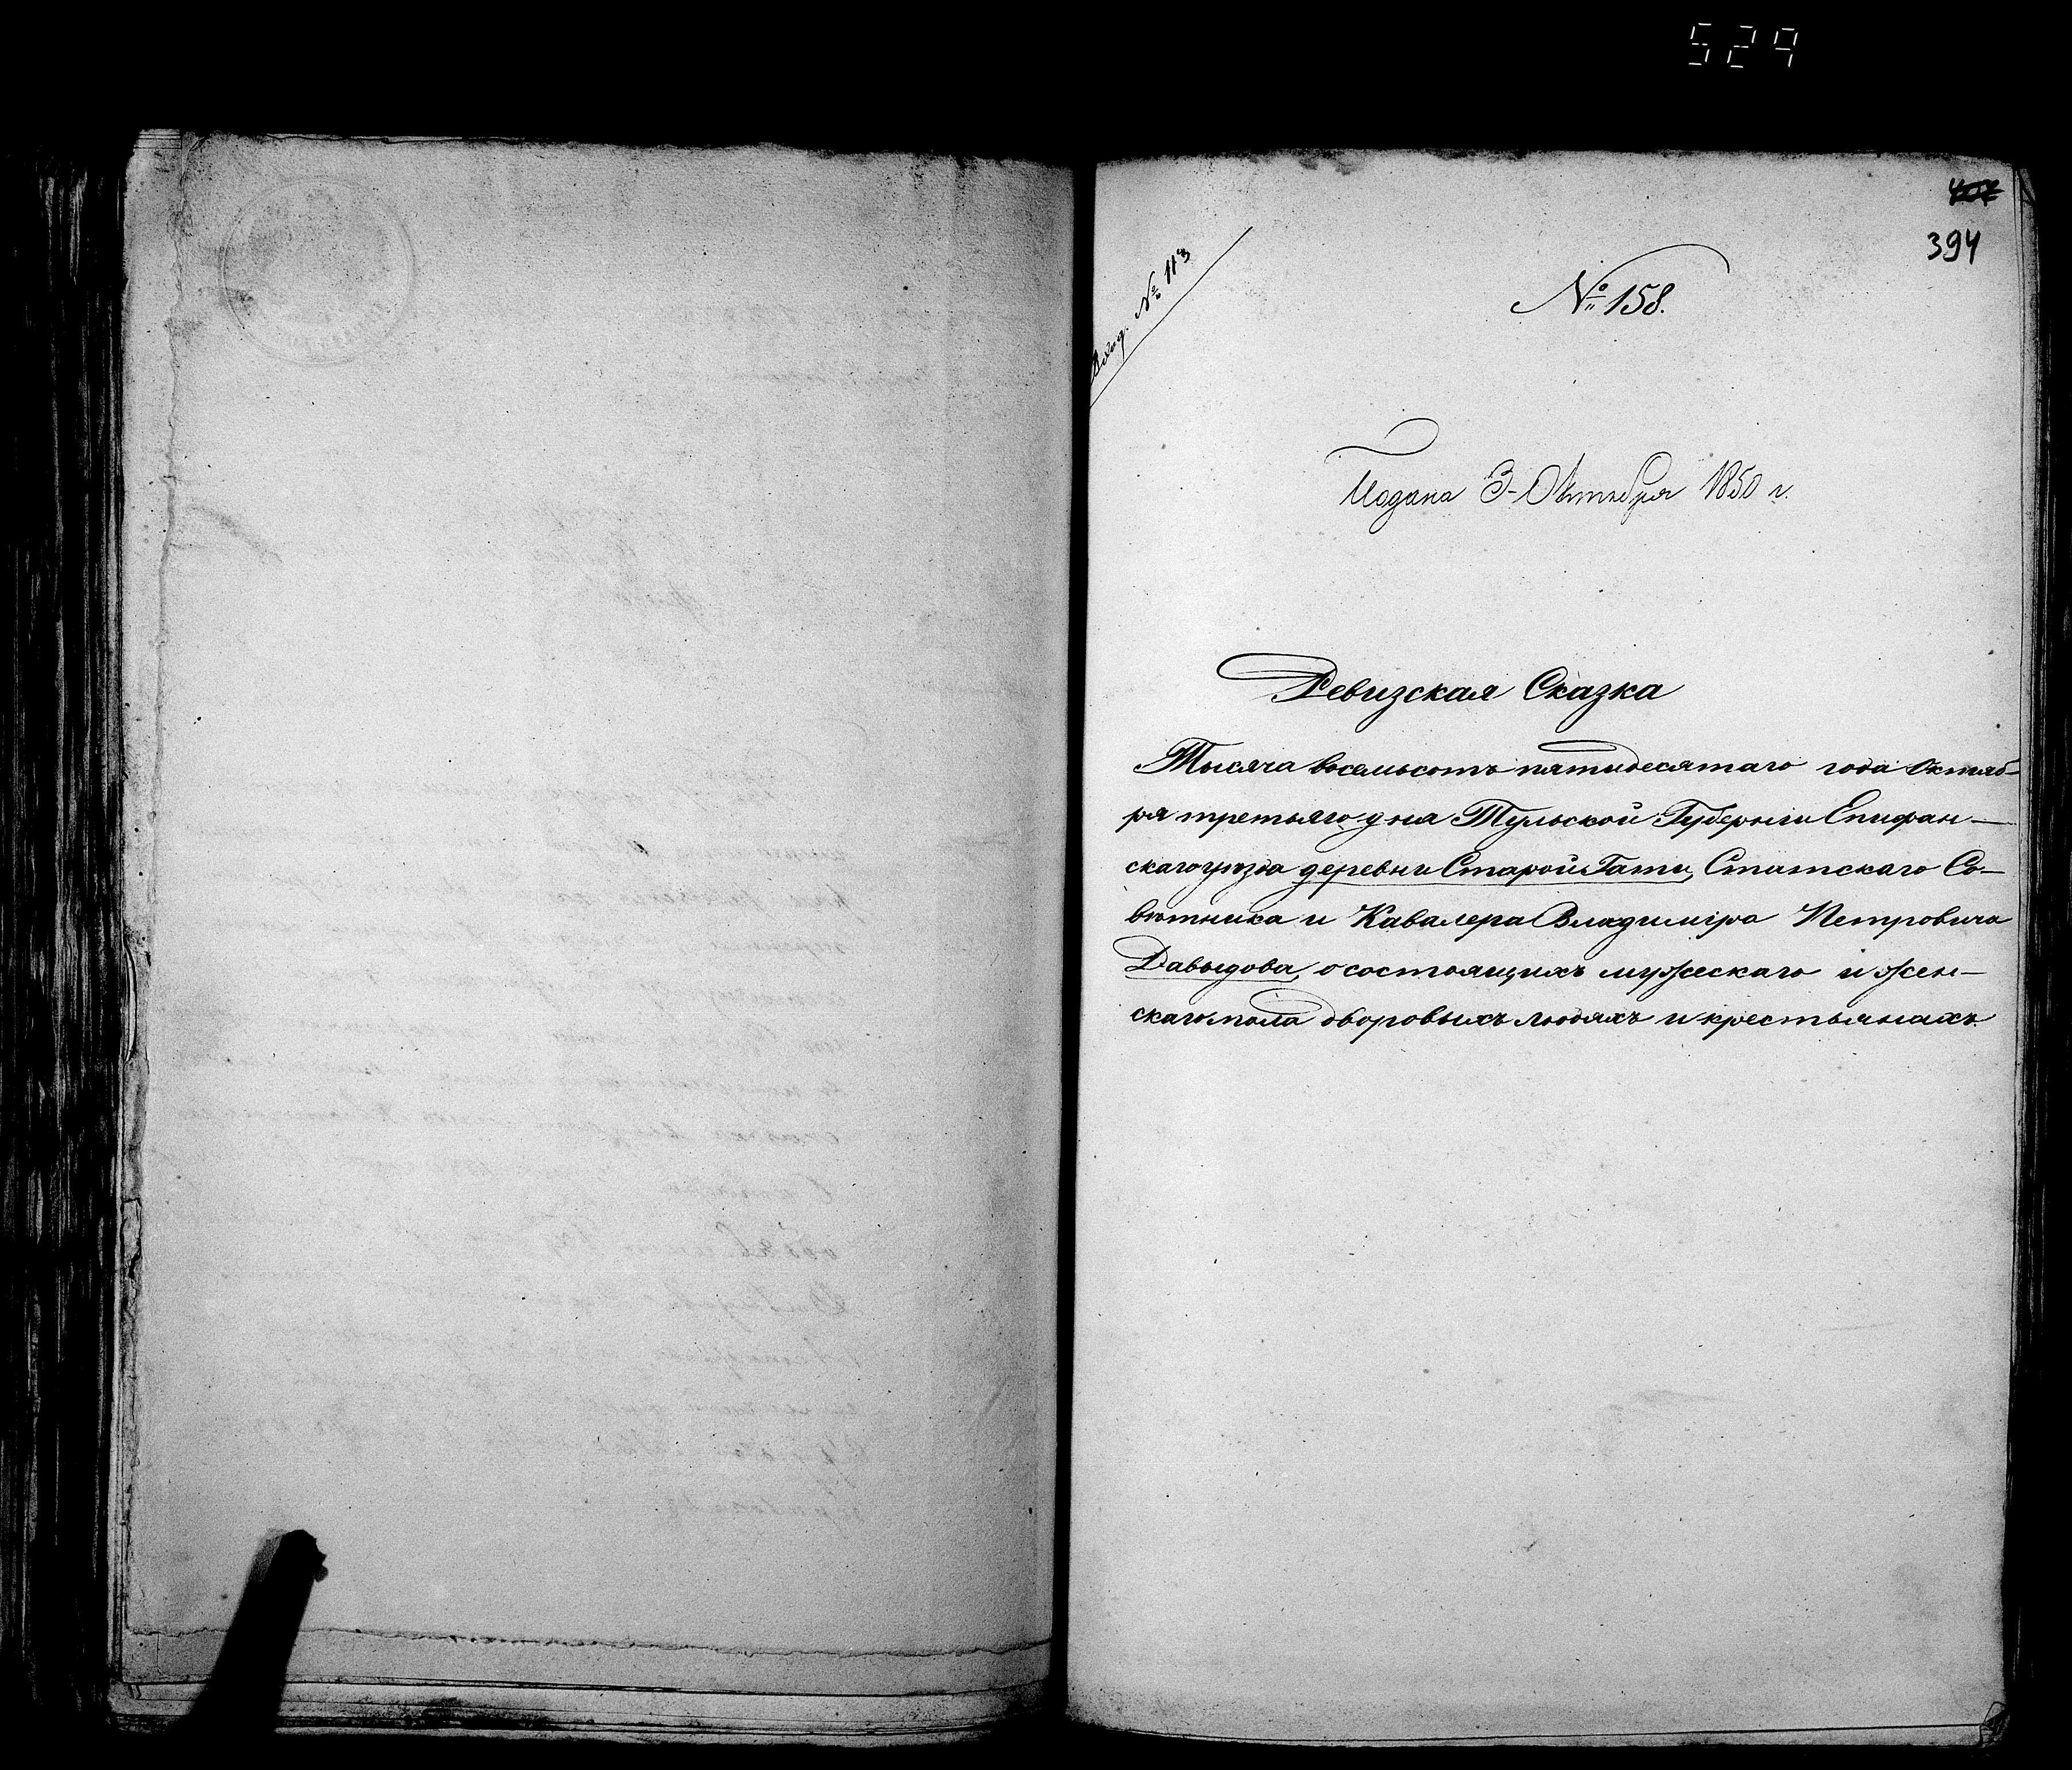 529
394
Вход. № 113
№ 158.
Подана 3 Октября 1850 г.
Ревизская Сказка
Тысяча восемьсотъ пятидесятаго года Октяб-
ря третьяго дня Тульской Губерніи Епифан-
скаго уѣзда деревни Старой Гати, Статскаго Со-
вѣтника и Кавалера Владиміра Петровича
Давыдова, о состоящихъ мужескаго и жен-
скаго пола дворовыхъ людяхъ и крестьянахъ.